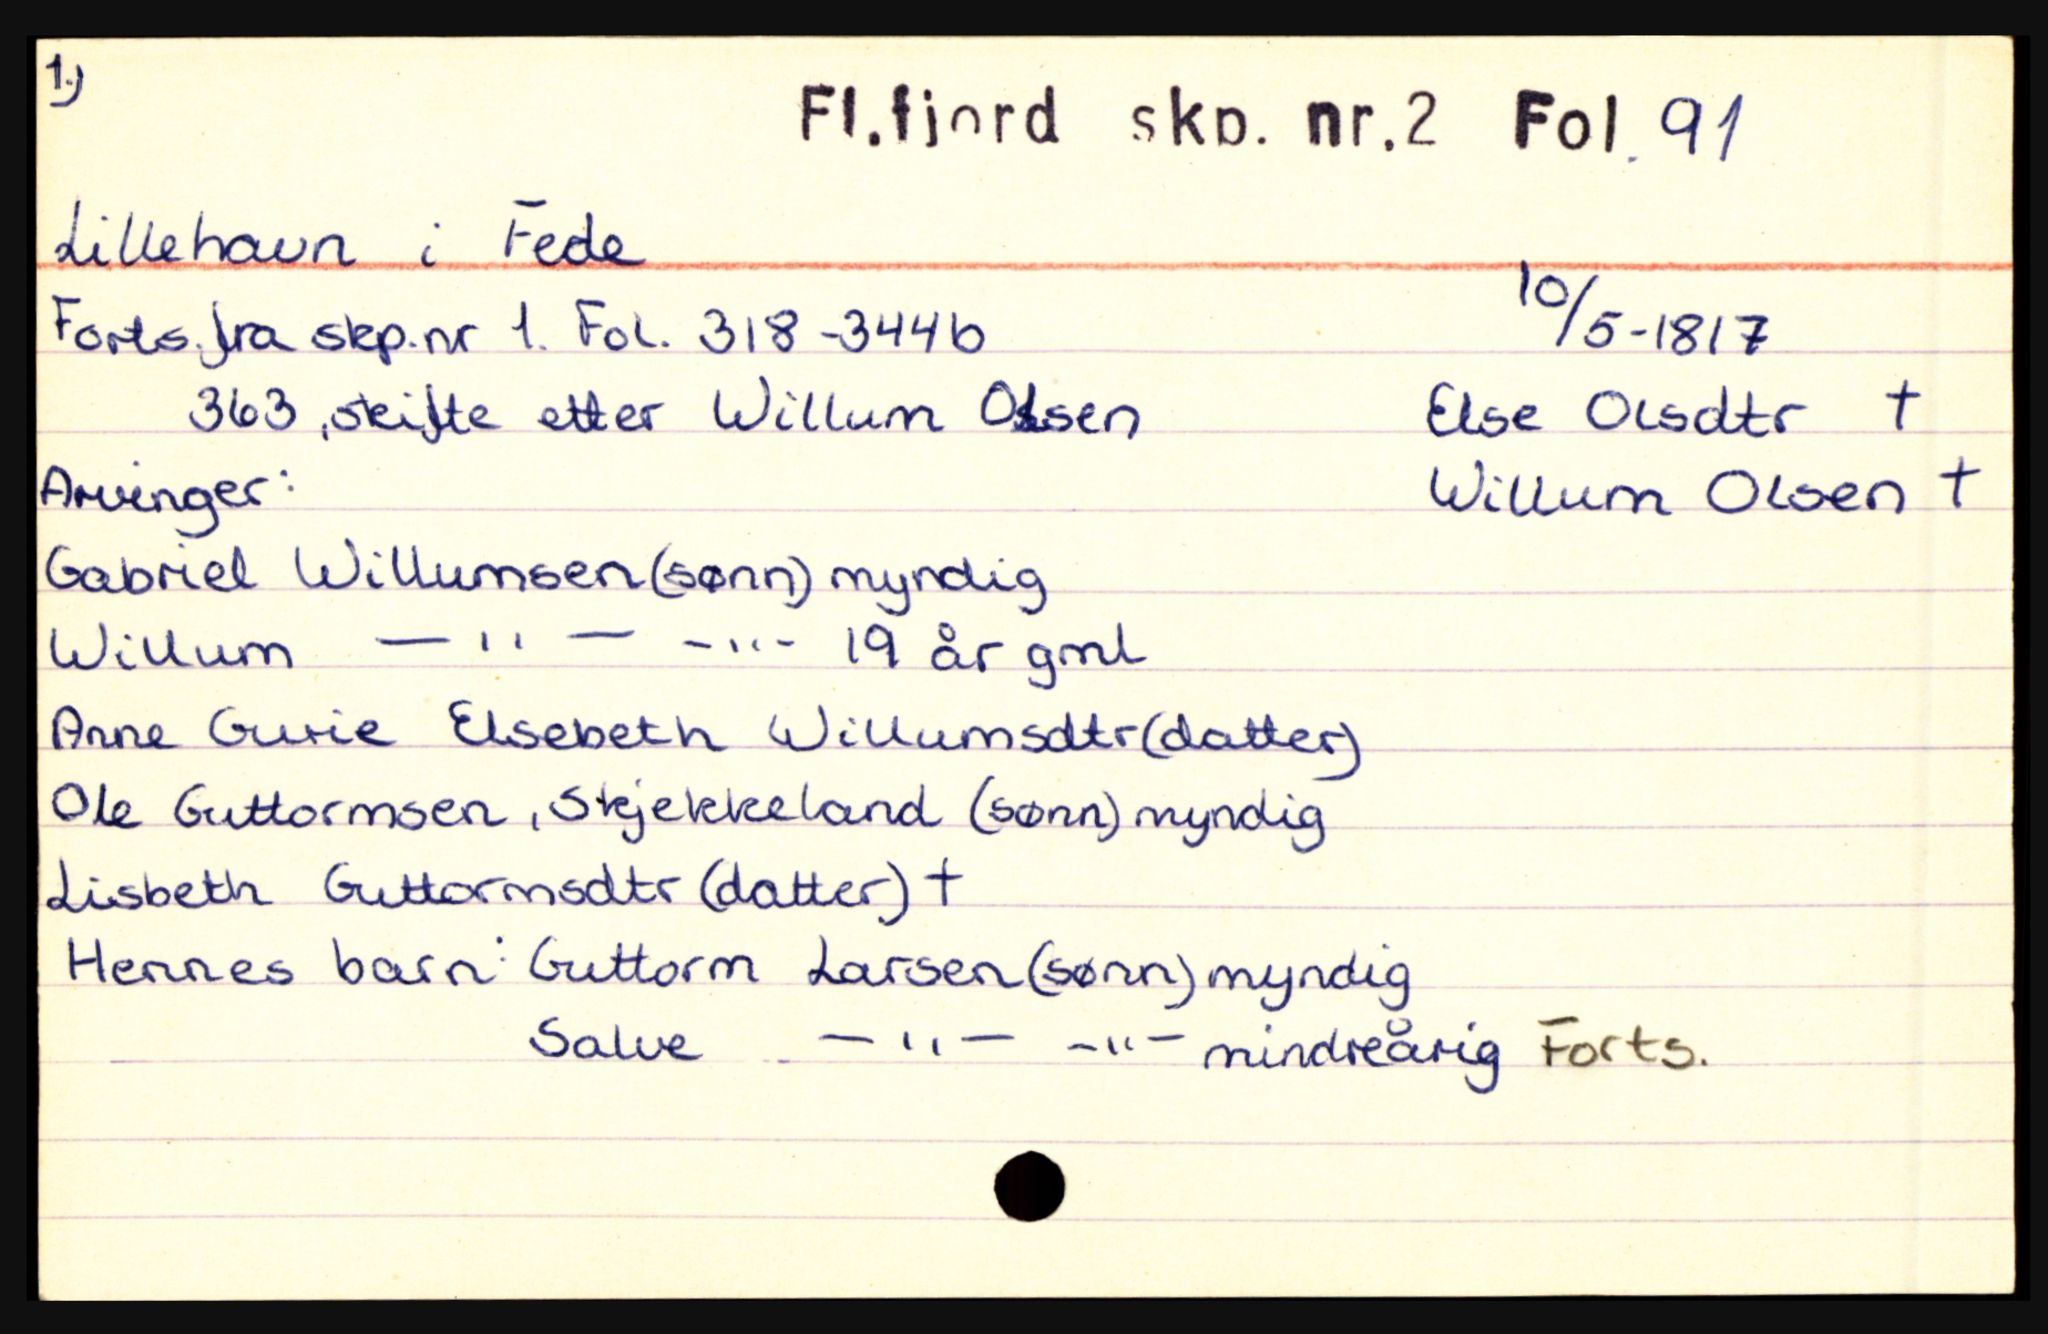 1.)
Fl.fjord skp. nr.2 Fol. 91
Lillehavn i Fede
Forts. fra skp.nr 1. Fol. 318-344b 10/5-1817
363, skifte etter Willum Olsen Else Olsdtr †
Arvinger: Willum Olsen †
Gabriel Willumsen (sønn) myndig
Willum — " — -"- 19 år gml
Anne Gurie Elsebeth Willumsdtr (datter)
Ole Guttormsen, Skjekkeland (sønn) myndig
Lisbeth Guttormsdtr (datter) †
Hennes barn: Guttorm Larsen (sønn) myndig
Salve — " — -"- mindreårig Forts.